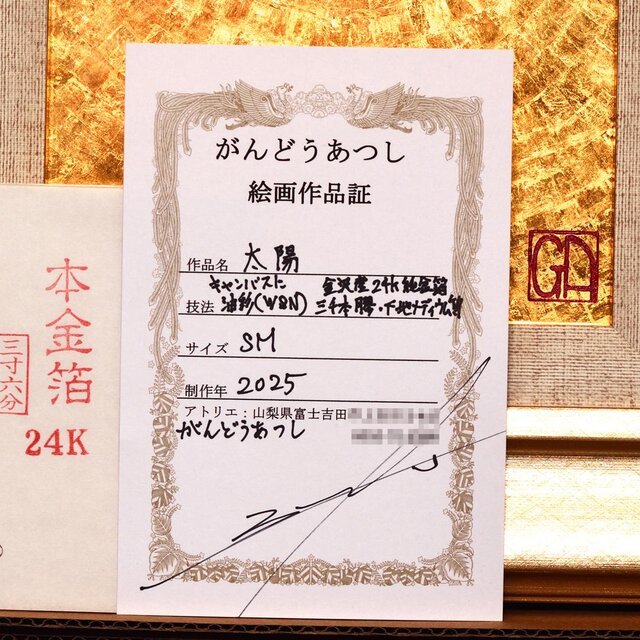 がんどうあつし
絵画作品証
作品名 太陽
キャンバスに 金沢産24k純金箔
技法: 油彩(W&N) 三千本膠・下地メディウム等
サイズ SM
制作年 2025
アトリエ:山梨県富士吉田
がんどうあつし
本金箔
三寸六分
24K
GA